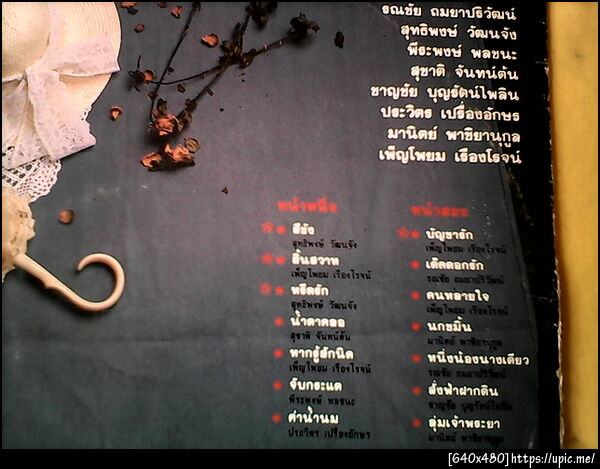 รณชัย ถมยาปริวัฒน์
สุทธิพงษ์ วัฒนจัง
พีระพงษ์ พลชนะ
สุชาติ จันทน์ต้น
ชาญชัย บุญรัตน์ไพลิน
ประวิตร เปรื่องอักษร
มานิตย์ พาชิยานุกูล
เพ็ญโพยม เรืองโรจน์
หน้าหนึ่ง
สีชัง
สุทธิพงษ์ วัฒนจัง
สิ้นสวาท
เพ็ญโพยม เรืองโรจน์
หรีดรัก
สุทธิพงษ์ วัฒนจัง
น้ำตาคลอ
สุชาติ จันทน์ต้น
หากรู้สักนิด
เพ็ญโพยม เรืองโรจน์
จับกระแต
พีระพงษ์ พลชนะ
ค่าน้ำนม
ประวิตร เปรื่องอักษร
หน้าสอง
บัญชารัก
เพ็ญโพยม เรืองโรจน์
เด็ดดอกรัก
รณชัย ถมยาปริวัฒน์
คนหลายใจ
เพ็ญโพยม เรืองโรจน์
นกขมิ้น
มานิตย์ พาชิยานุกูล
หนึ่งน้องนางเดียว
รณชัย ถมยาปริวัฒน์
สั่งฟ้าฝากดิน
ชาญชัย บุญรัตน์ไพลิน
ลุ่มเจ้าพระยา
มานิตย์ พาชิยานุกูล
[640x480]https://upic.me/